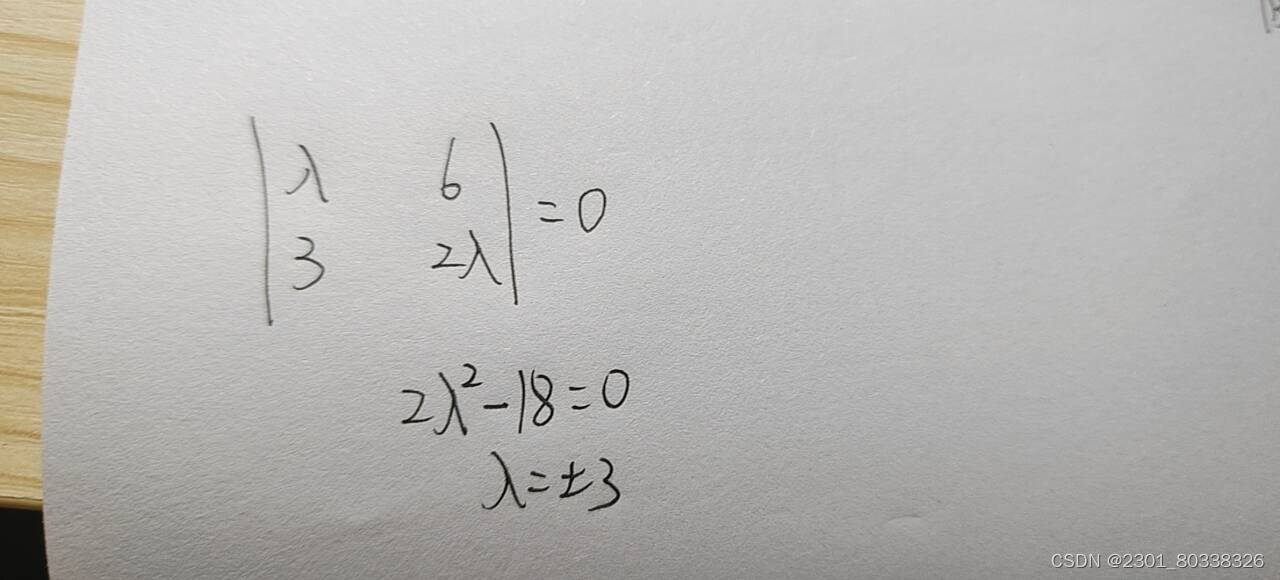 | λ 6 |
| 3 2λ | = 0
2λ² - 18 = 0
λ = ±3
CSDN @2301_80338326